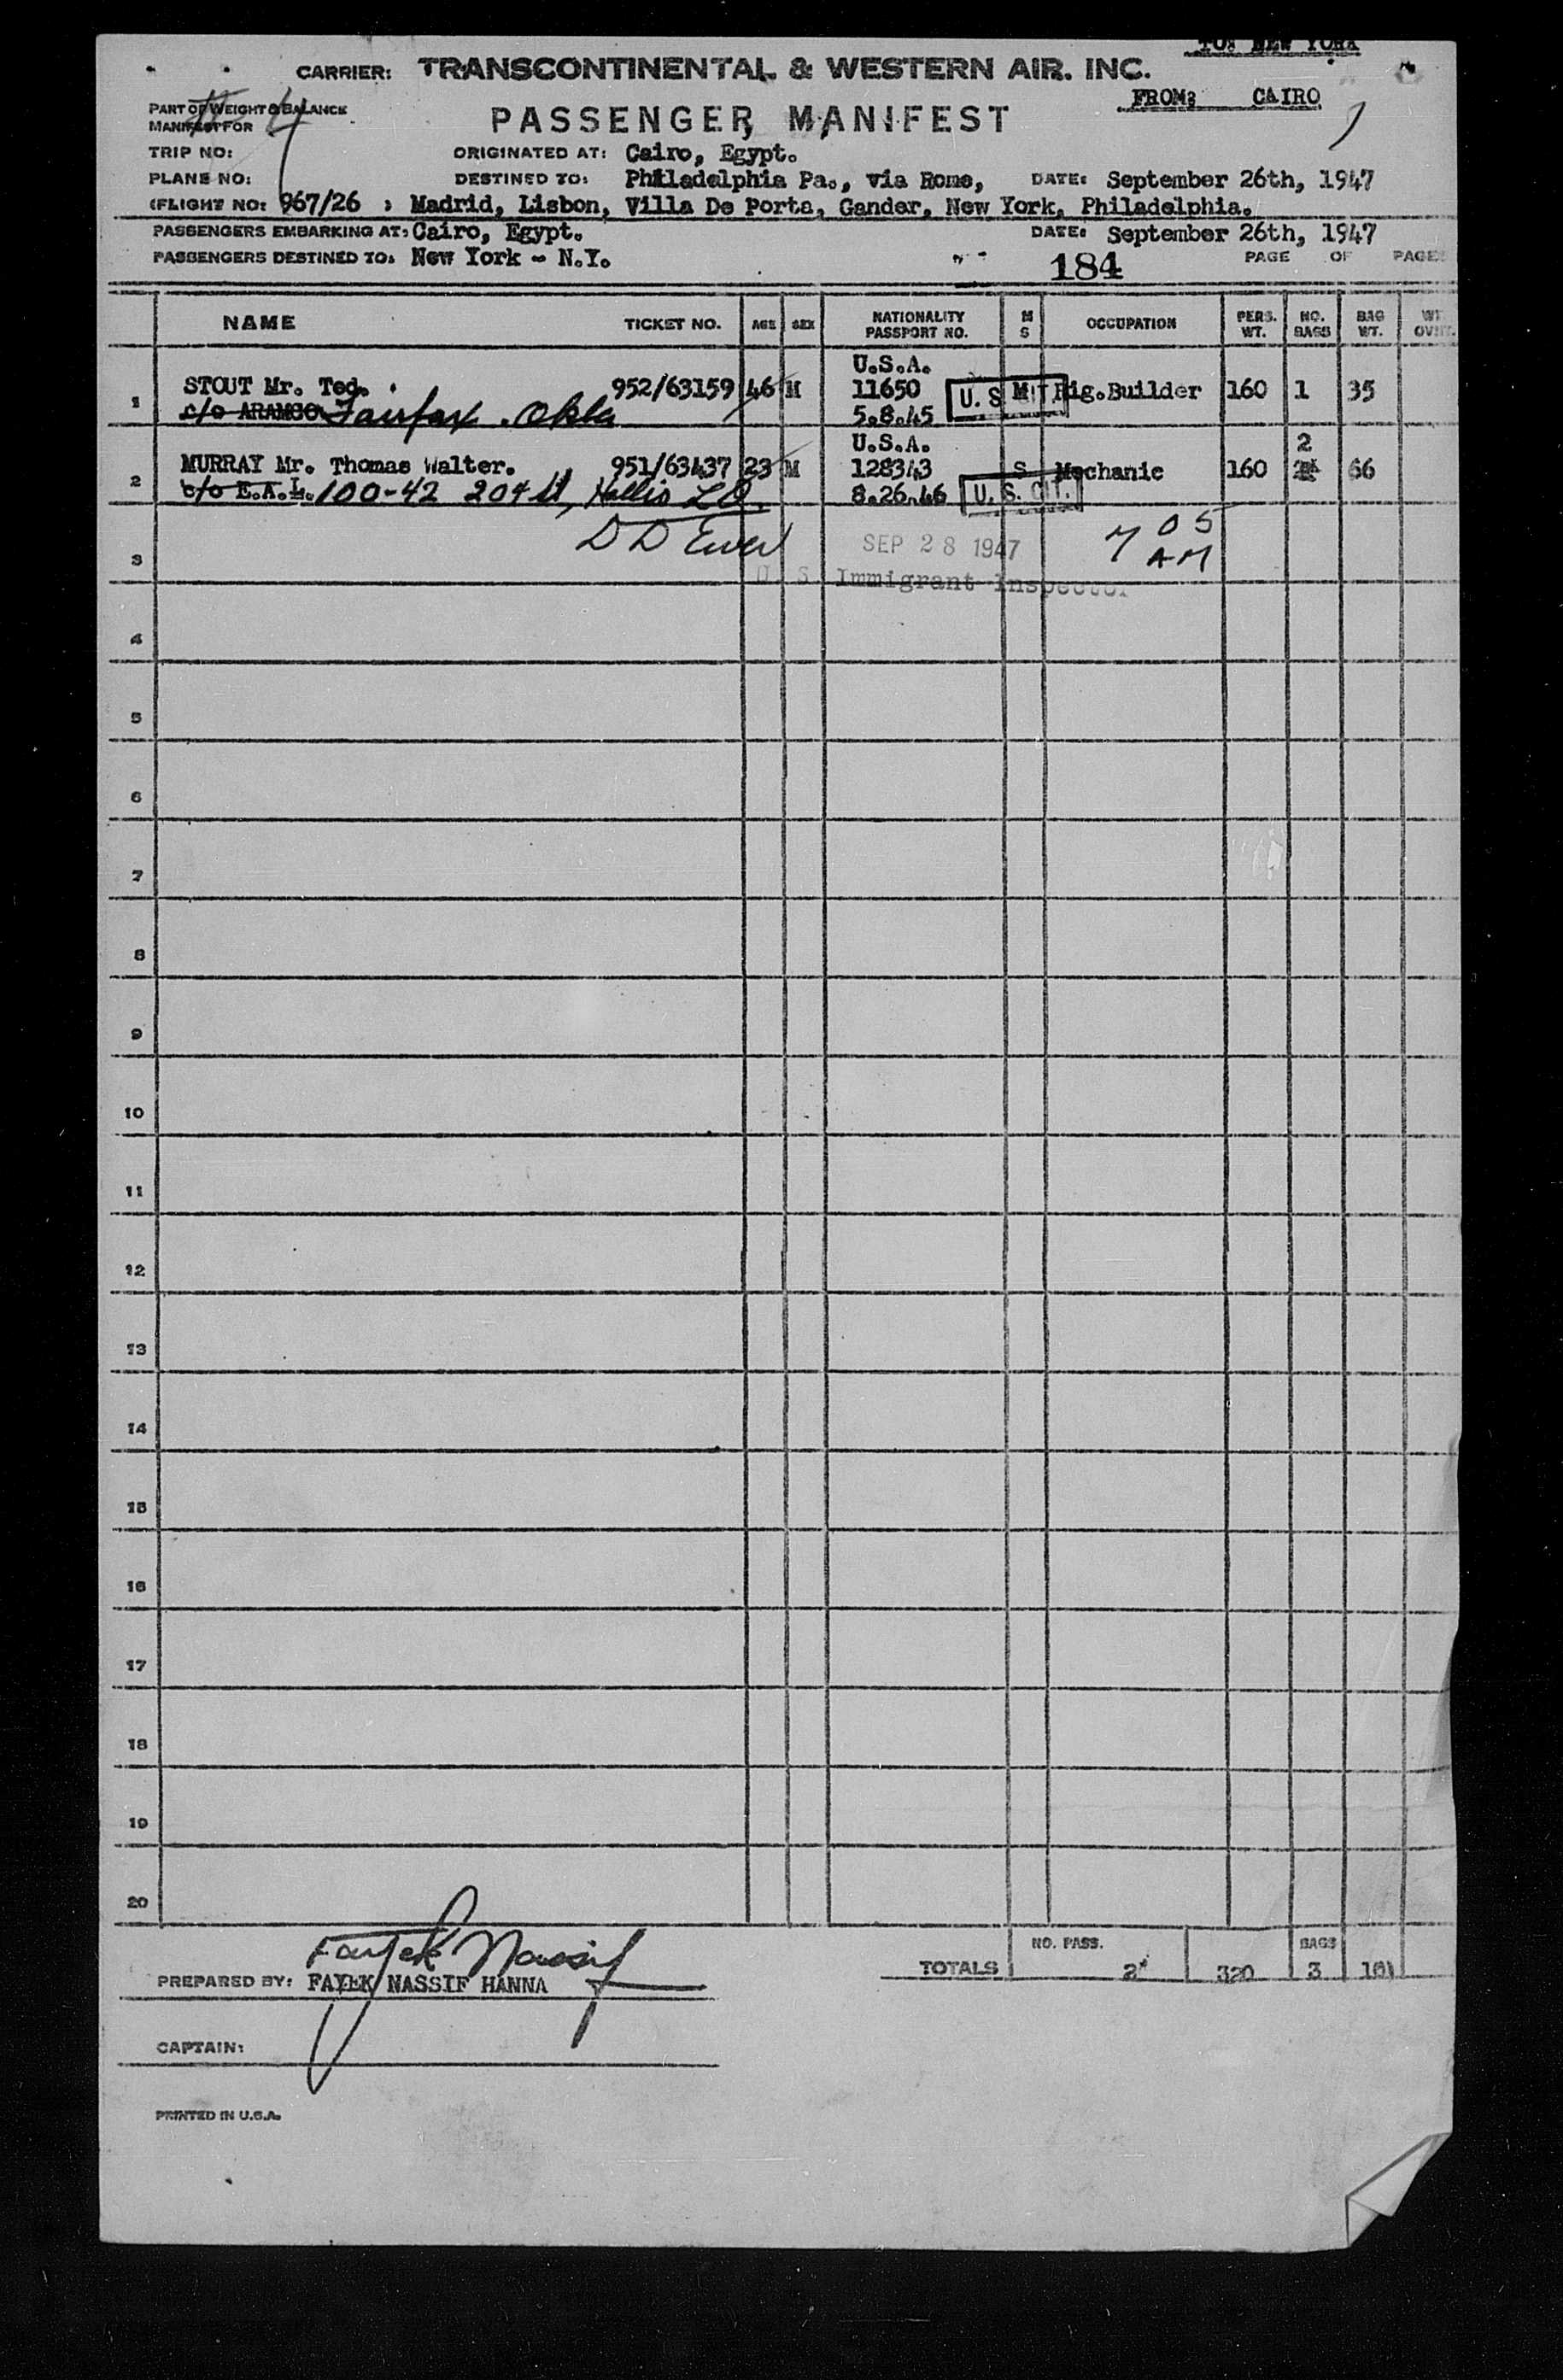 TO: NEW YORK
CARRIER: TRANSCONTINENTAL & WESTERN AIR. INC.
FROM: CAIRO
PART OF WEIGHT & BALANCE
MANIFEST FOR
PASSENGER MANIFEST
TRIP NO: ORIGINATED AT: Cairo, Egypt.
PLANE NO: DESTINED TO: Philadelphia Pa., via Rome, DATE: September 26th, 1947
(FLIGHT NO: 967/26 ) Madrid, Lisbon, Villa De Porta, Gander, New York, Philadelphia.
PASSENGERS EMBARKING AT: Cairo, Egypt. DATE: September 26th, 1947
PASSENGERS DESTINED TO: New York - N.Y. 184 PAGE OF PAGES
NAME TICKET NO. AGE SEX NATIONALITY PASSPORT NO. M S OCCUPATION PERS. WT. NO. BAGS BAG WT. WT.
U.S.A.
1 STOUT Mr. Ted. 952/63159 46 M 11650 U.S. CIT M Rig.Builder 160 1 35
c/o ARAMCO Fairfax. Okla 5.8.45
U.S.A. 2
2 MURRAY Mr. Thomas Walter. 951/63437 23 M 128343 S Mechanic 160 66
c/o E.A.L. 100-42 204 St, Hollis L.I. 8.26.46 U.S. CIT.
3 SEP 28 1947 7 05 AM
U S Immigrant Inspector
4
5
6
7
8
9
10
11
12
13
14
15
16
17
18
19
20
Fayek Nassif
NO. PASS. BAGS
TOTALS 2 320 3 101
PREPARED BY: FAYEK NASSIF HANNA
CAPTAIN:
PRINTED IN U.S.A.